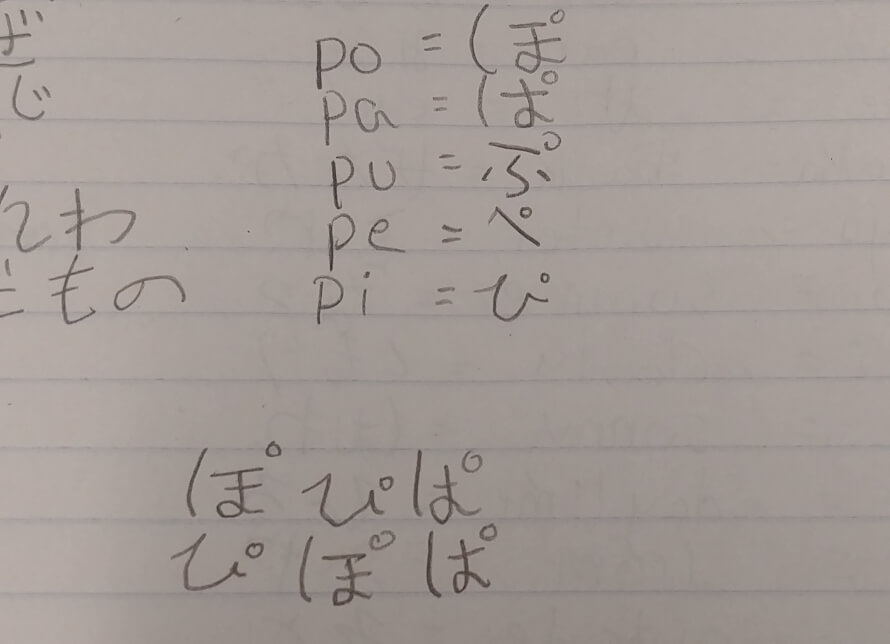 po = ぽ
pa = ぱ
pu = ぷ
pe = ぺ
pi = ぴ
じ
わ
もの
ぽぴぱ
ぴぽぱ